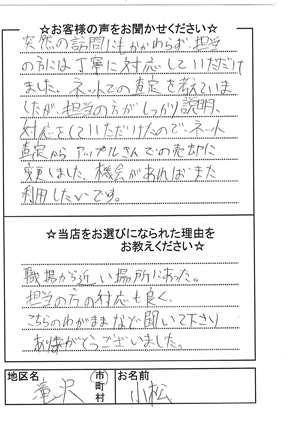 ☆お客様の声をお聞かせください☆
突然の訪問にもかかわらず、担当
の方には丁寧に対応していただけ
ました。ネットでの査定を考えていま
したが、担当の方がしっかり説明、
対応をしていただけたので、ネット
査定からアップルさんでの売却に
変更しました。機会があればまた
利用したいです。
☆当店をお選びになられた理由を
お教えください☆
職場から近い場所にあった。
担当の方の対応も良く、
こちらのわがままなど聞いて下さり
ありがとうございました。
地区名 滝沢 市町村 お名前 小松